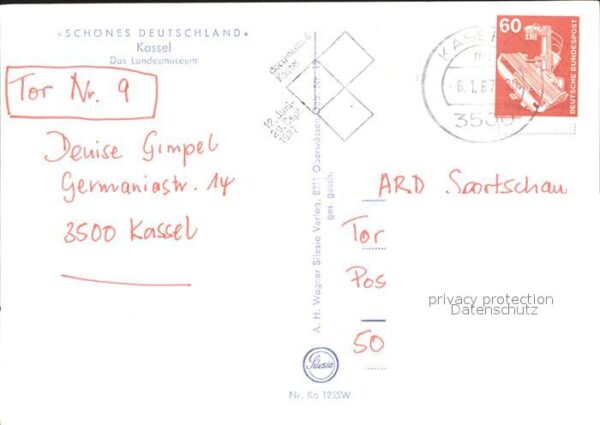 «SCHÖNES DEUTSCHLAND»
Kassel
Das Landesmuseum
Tor Nr. 9
Denise Gimpel
Germaniastr. 14
3500 Kassel
documenta 8
Kassel
12. Juni-
20. Sept.
1987
A. H. Wagner Silesia Verlag, 8311 Oberwössen
ges. gesch.
Silesia
Nr. Ka 1255W
KASSEL
-6.1.87
3500
60
DEUTSCHE BUNDESPOST
ARD Sportschau
Tor
Pos
50
privacy protection
Datenschutz